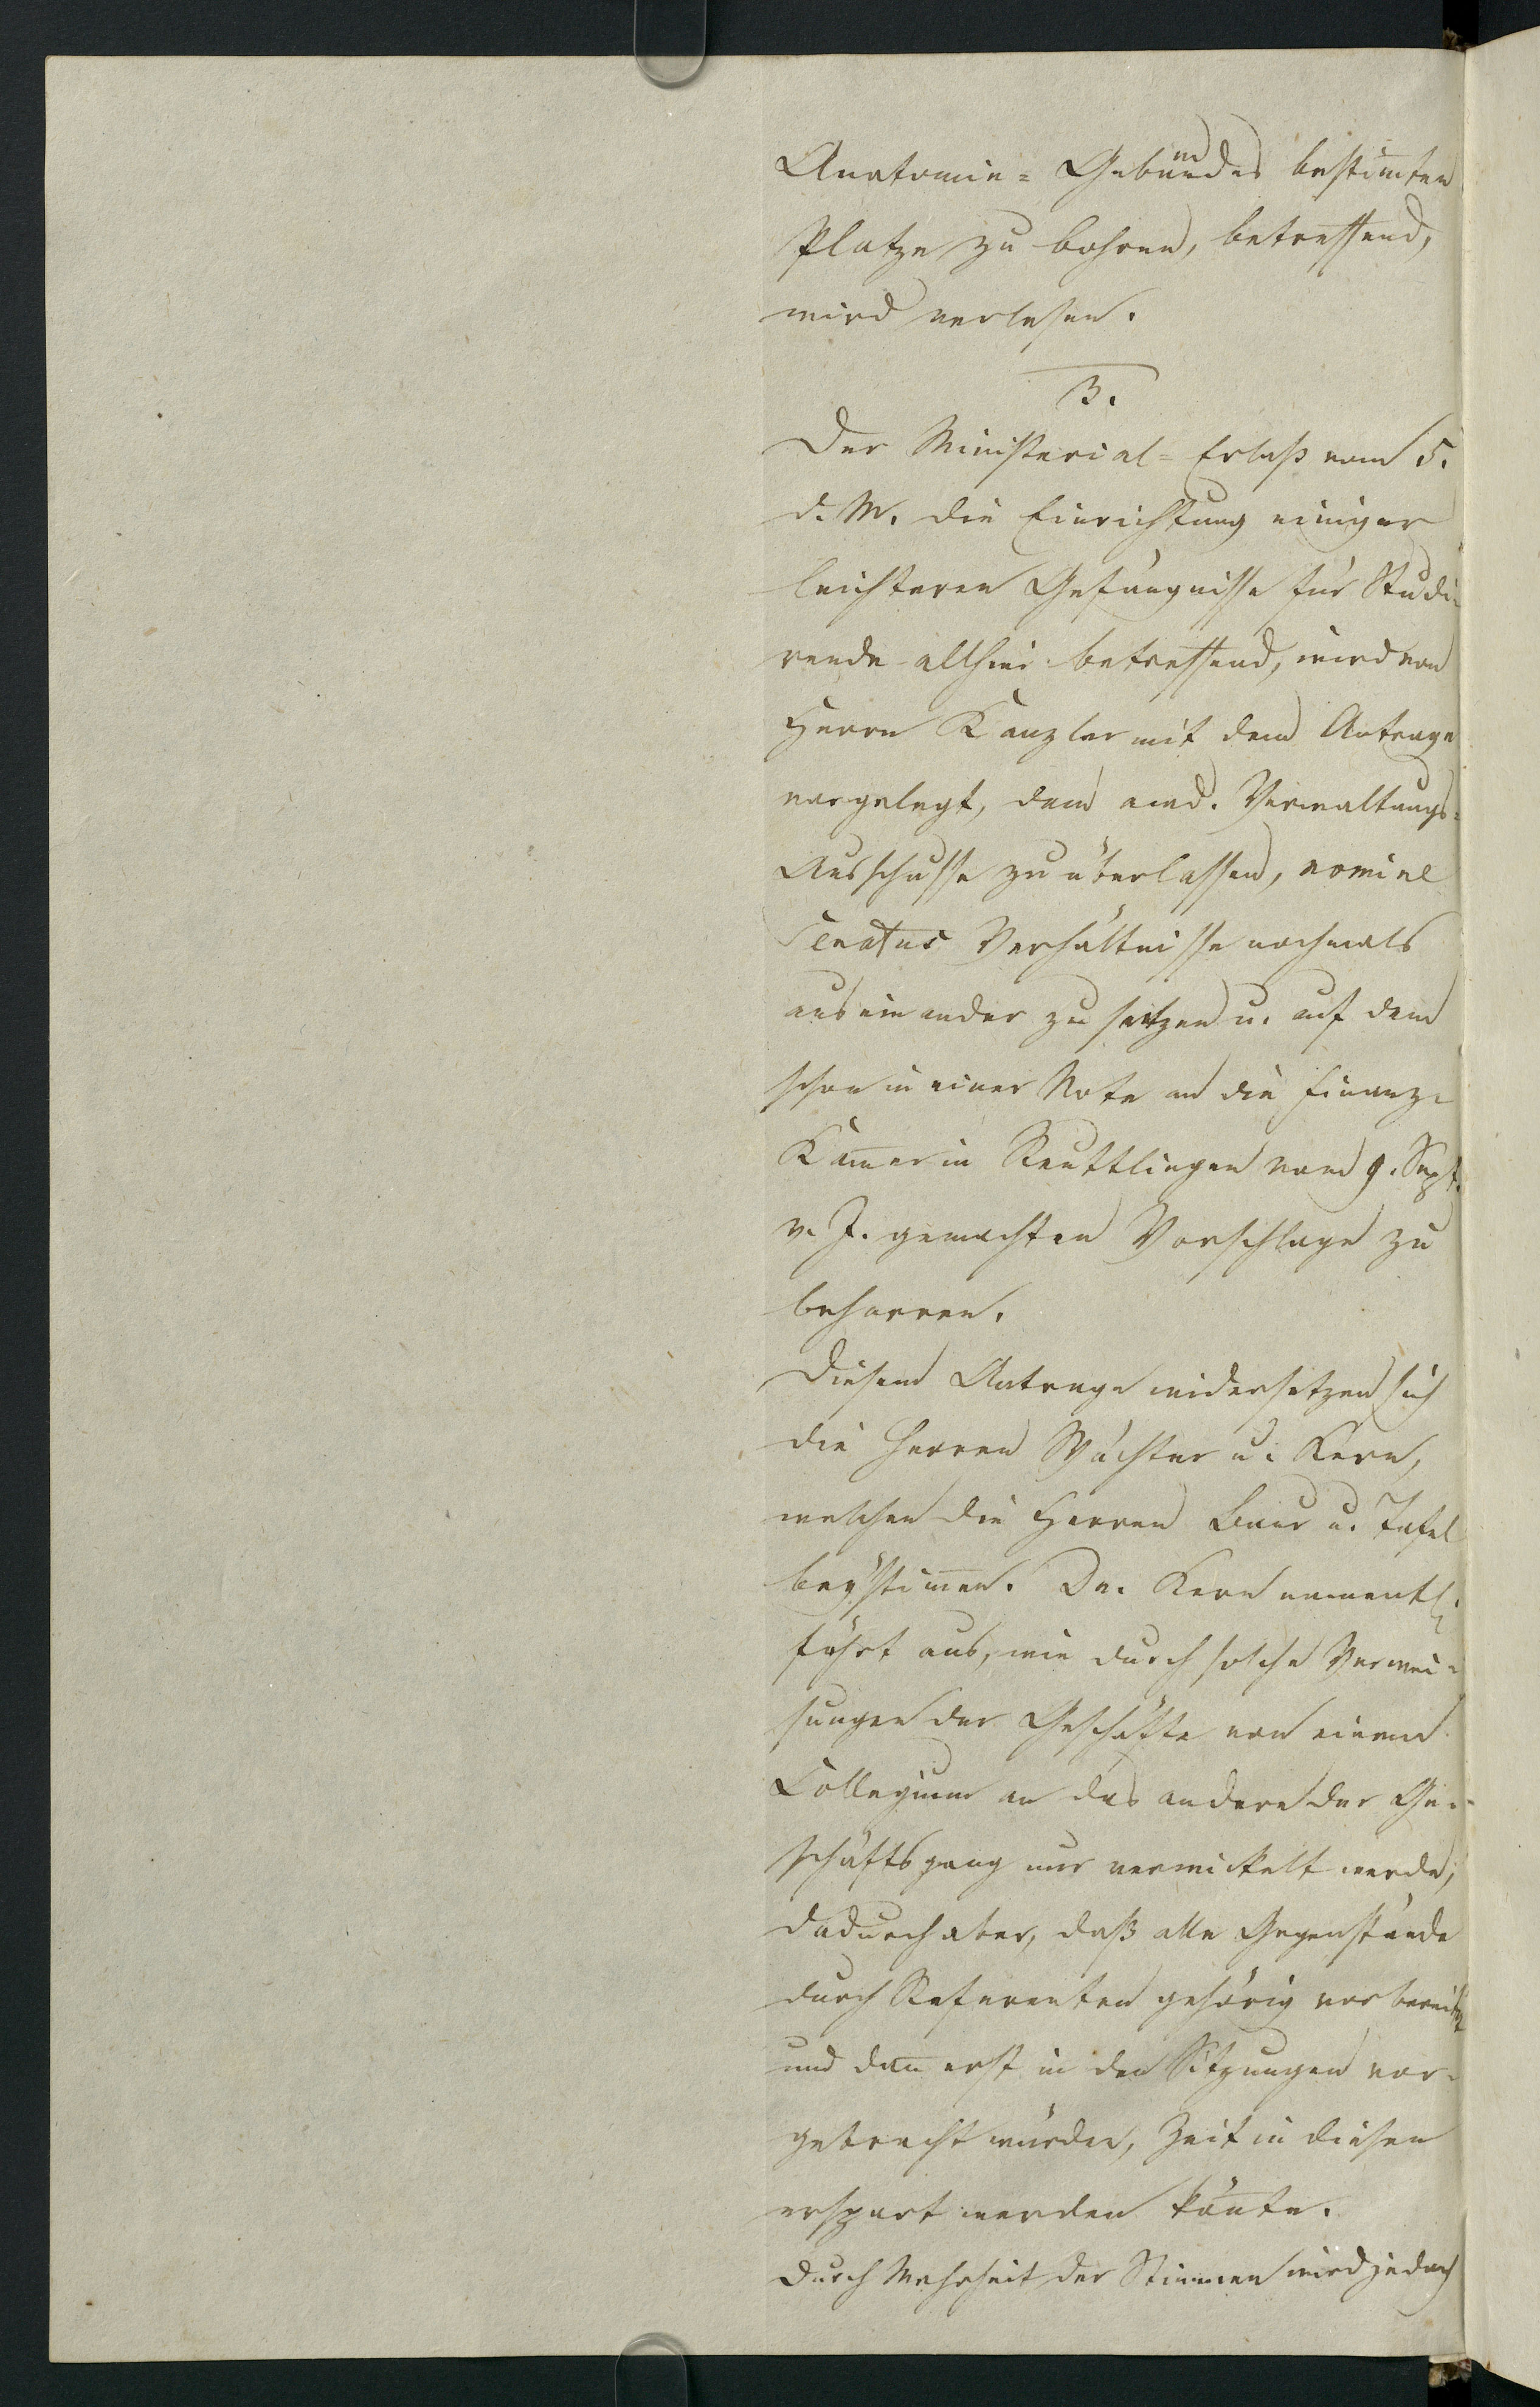 Anatomie= Gebäudes bestim̄ten
Platze zu bohren, betreffend,
wird verlesen.
3.
Der Ministerial=Erlaß vom 5.
d. M. die Einrichtung einiger
leichteren Gefängnisse für Studi-
rende allhier betreffend, wird von
Herrn Kanzler mit dem Antrage
vorgelegt, dem acad. Verwaltungs-
Ausschusse zu überlassen,
Senatus Verhältnisse nochmals
auseinander zu setzen u. auf dem
schon in einer Note an die Finanz-
Kam̄er in Reuttlingen vom 9. Sept.
v. J. gemachten Vorschlage zu
beharren.
Diesem Antrage widersetzen sich
die Herren Wächter u. Kern,
welchen die Herren Baur u. Tafel
beystim̄en. Dr. Kern namentl.
führt aus, wie durch solche Verwei-
sungen der Geschäfte von einem
Collegium an das andere der Ge-
schäftsgang nur verwickelt werde,
dadurch aber, daß alle Gegenstände
durch Referenten gehörig vorbereitet
und dan̄ erst in den Sitzungen vor-
gebracht würden, Zeit in diesen
erspart werden kön̄te.
Durch Mehrheit der Stimmen wird jedoch